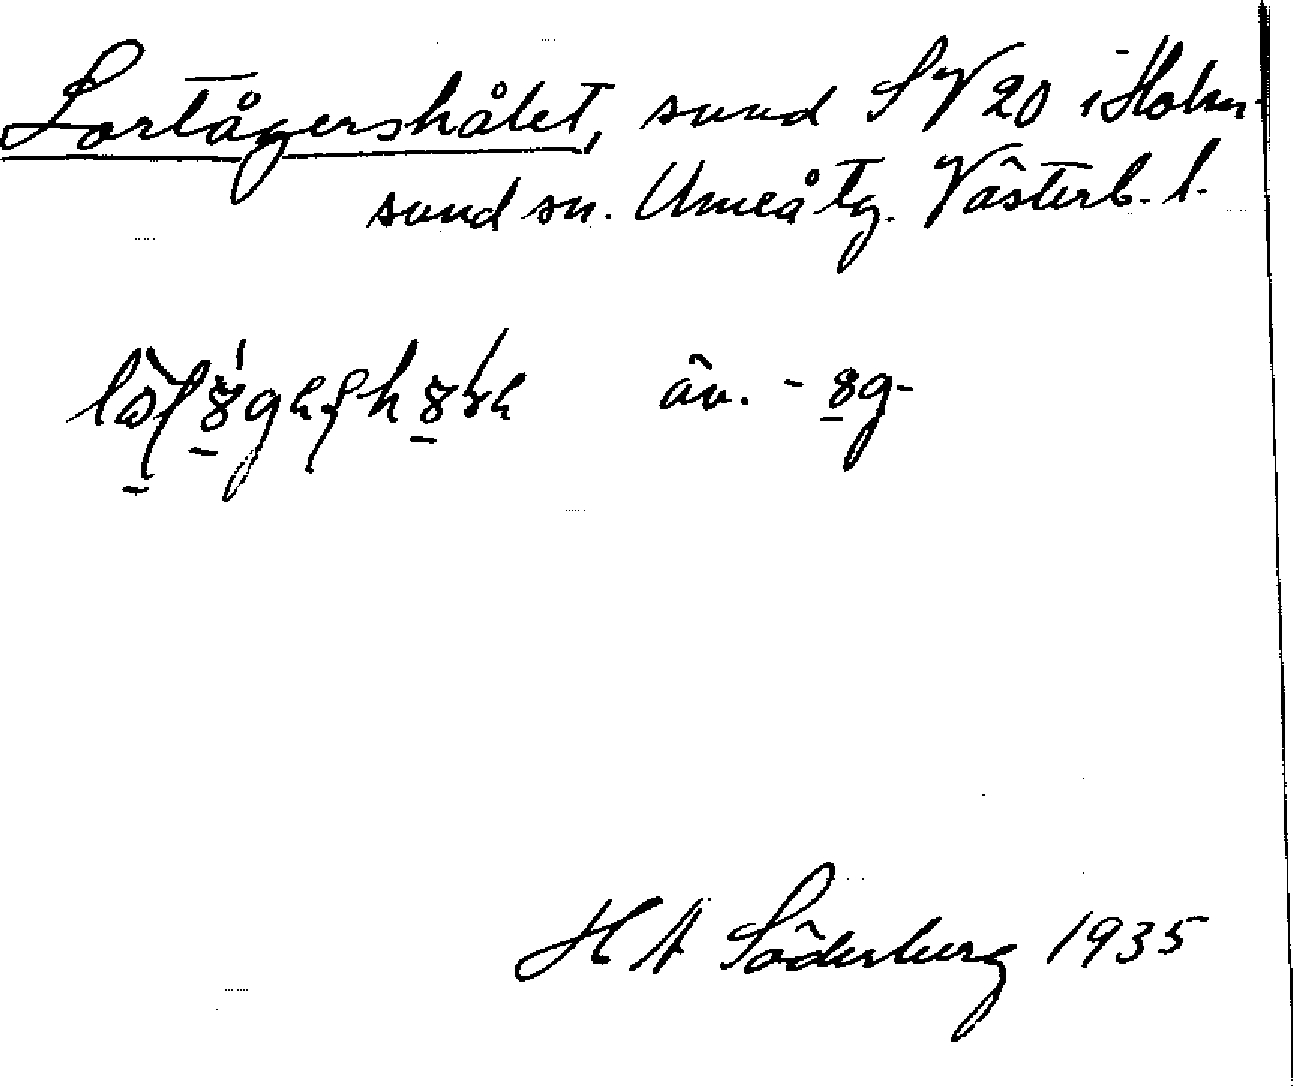 Lortågershålet, sund SV 20 i Holm-
sund sn. Umeå tg. Västerb. l.
äv. -
H A Söderberg 1935